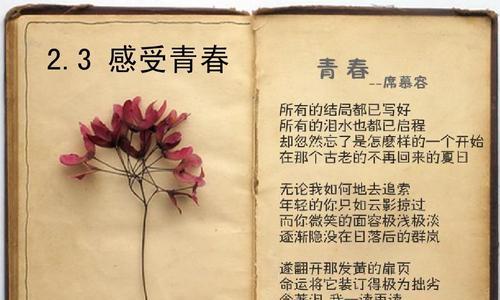 2.3 感受青春
青春
--席慕容
所有的结局都已写好
所有的泪水也都已启程
却忽然忘了是怎麽样的一个开始
在那个古老的不再回来的夏日
无论我如何地去追索
年轻的你只如云影掠过
而你微笑的面容极浅极淡
逐渐隐没在日落后的群岚
遂翻开那发黄的扉页
命运将它装订得极为拙劣